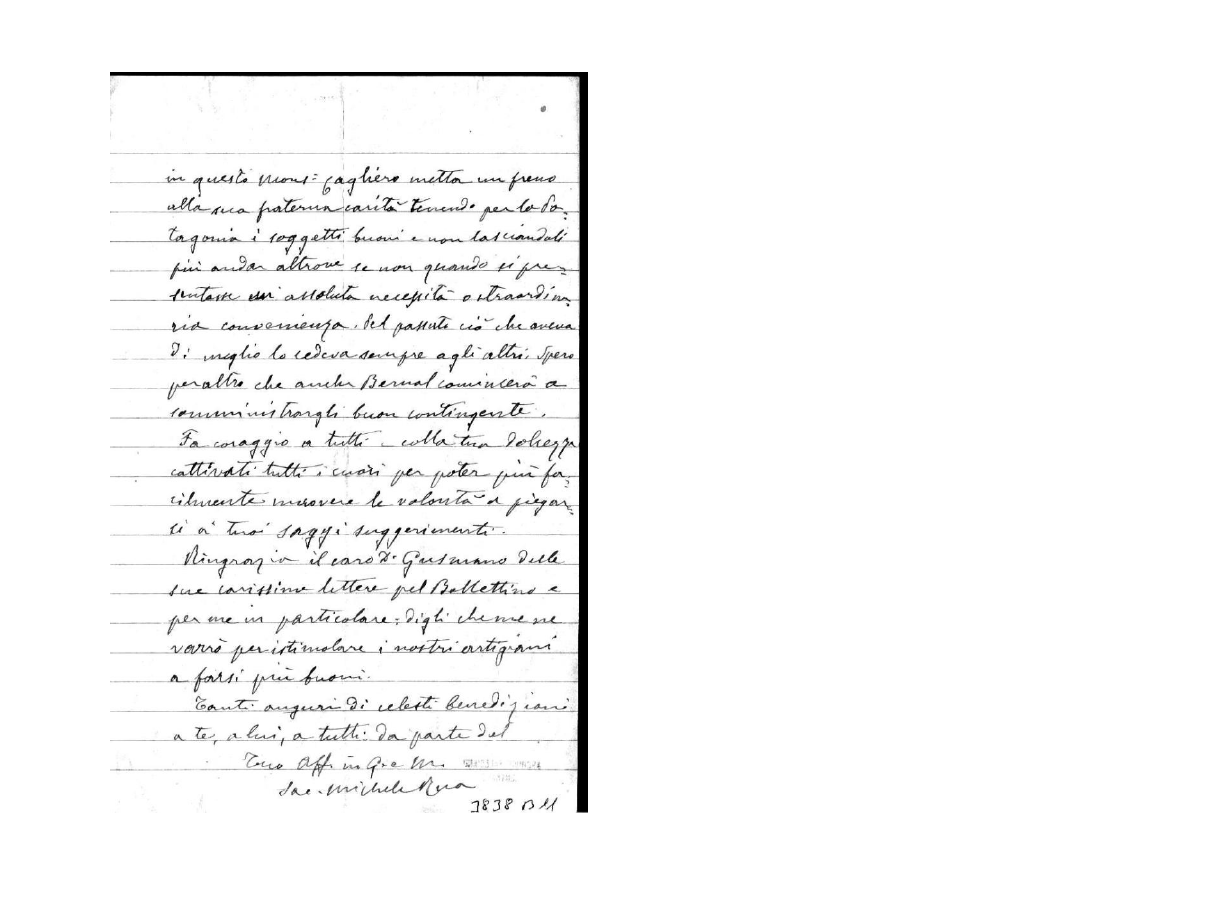 in questo Mons: Cagliero metta un freno
alla sua fraterna carità tenendo per la Pa=
tagonia i soggetti buoni e non lasciandoli
più andar altrove se non quando si pre=
sentasse un' assoluta necessità o straordina=
ria convenienza. Pel passato ciò che aveva
di meglio lo cedeva sempre agli altri. Spero
peraltro che anche Bernal comincerà a
somministrargli buon contingente.
Fa coraggio a tutti e colla tua dolcezza
cattivati tutti i cuori per poter più fa=
cilmente muovere le volontà a piegar=
si a' tuoi saggi suggerimenti.
Ringrazia il caro D. Gusmano delle
sue carissime lettere pel Bollettino e
per me in particolare; digli che me ne
varrò per istimolare i nostri artigiani
a farsi più buoni.
Tanti auguri di celesti benedizioni
a te, a lui, a tutti da parte del
Tuo Aff in G e M.
Sac. Michele Rua
3838 B 11